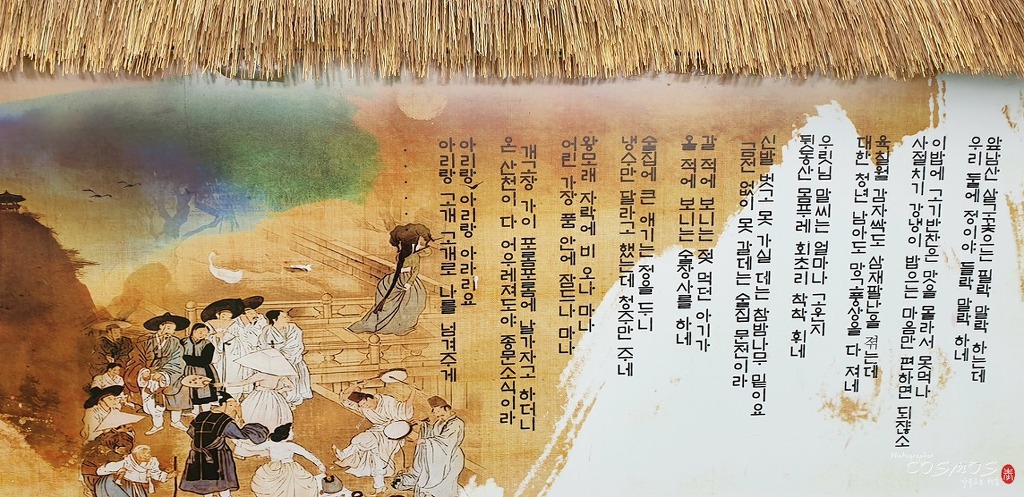 앞남산 살구꽃은 필락 말락 하는데
우리 둘에 정이야 들락 말락 하네
이밥에 고기반찬은 맛을 몰라서 못먹나
사절치기 강냉이 밥은 마음만 편하면 되잖소
육칠월 감자싹도 삼재팔난을 겪는데
대한 청년 남아도 만고풍상을 다 져네
우릿님 말씨는 얼마나 고운지
뒷동산 몸푸레 회초리 착착 휘네
신발 벗고 못 가실 데는 참밤나무 밑이요
금전 없이 못 갈데는 술집 문전이라
갈 적에 보니는 젖 먹던 아기가
올 적에 보니는 술장사를 하네
술집에 큰 애기는 정을 두니
냉수만 달라고 했는데 청주만 주네
왕모래 자락에 비 오나 마나
어린 가장 품 안에 잠드나 마나
개구장 가이 포름포름에 날 가자고 하더니
온 산천이 다 어우레져도야 종문소식이라
아리랑 아리랑 아라리요
아리랑 고개 고개로 나를 넘겨주게
Photographer
COSMOS